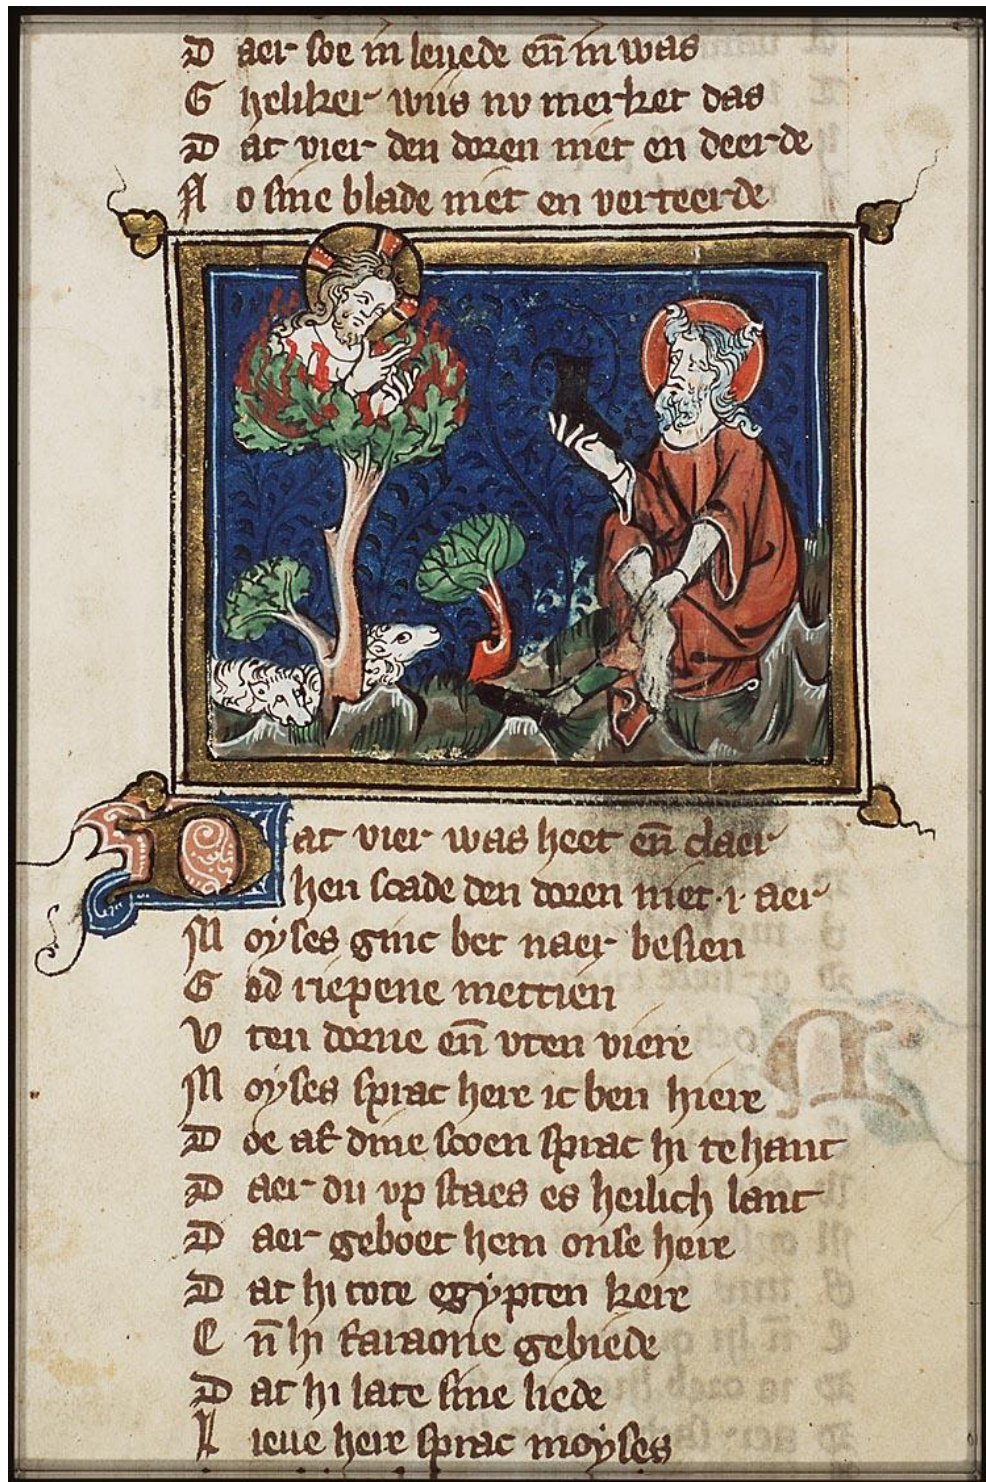 D aer soe in leuede en̄ in was
G heliker wiis nv merket das
D at vier den doren niet en deerde
N o sine blade niet en verteerde
D at vier was heet en̄ claer
hen scade den doren niet .i. aer
M oyses ginc bet naer besien
G od riepene mettien
V ten dorne en̄ vten viere
M oyses sprac here ic ben hiere
D oe af dine scoen sprac hi te hant
D aer du vp staes es heilich lant
D aer geboet hem onse here
D at hi tote egypten kere
E n̄ hi faraone gebiede
D at hi late sine liede
L ieue here sprac moyses